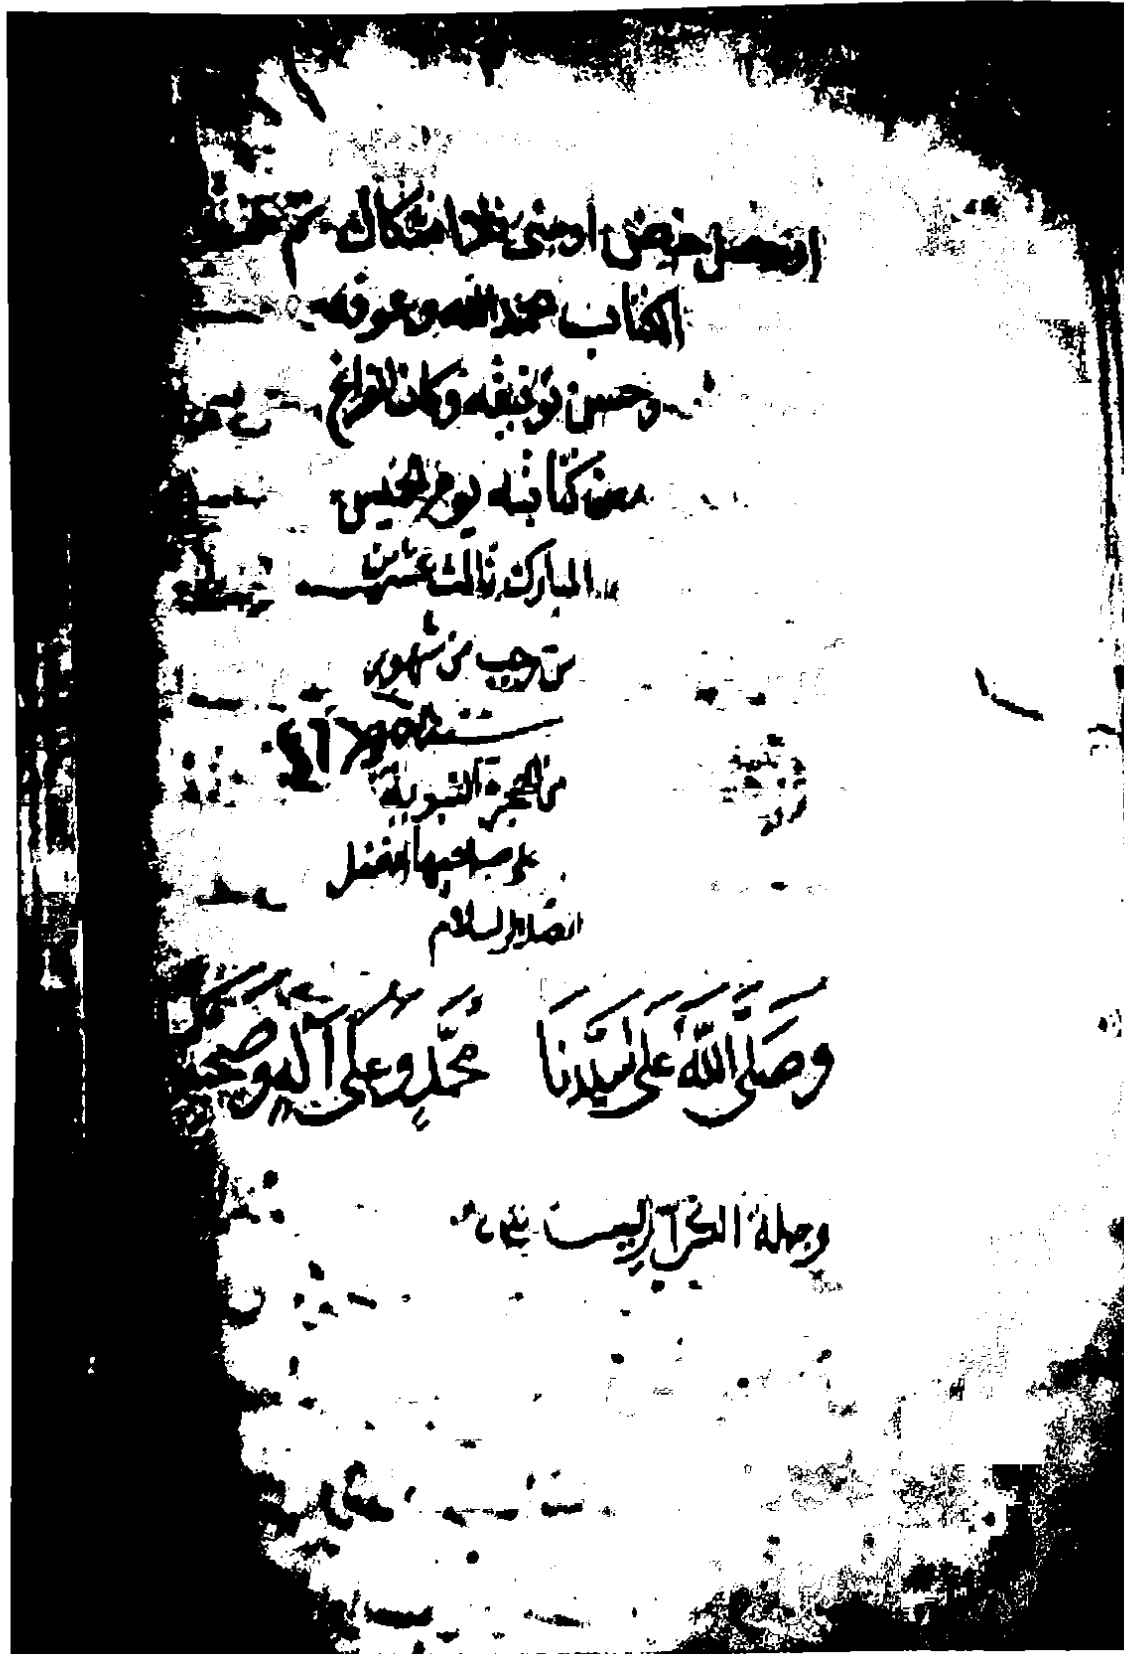 او حصل حيض او مني فلا اشكال تم
الكتاب بحمد الله وعونه
وحسن توفيقه وكان الفراغ
من كتابته يوم الخميس
المبارك ثالث عشرين
من رجب من شهور
سنة
من الهجرة النبوية
على صاحبها افضل
الصلاة والسلام
وَصَلَّى اللّهُ عَلَى سَيِّدِنَا مُحَمَّدٍ وَعَلَى آلِهِ وَصَحْبِهِ
وجملة